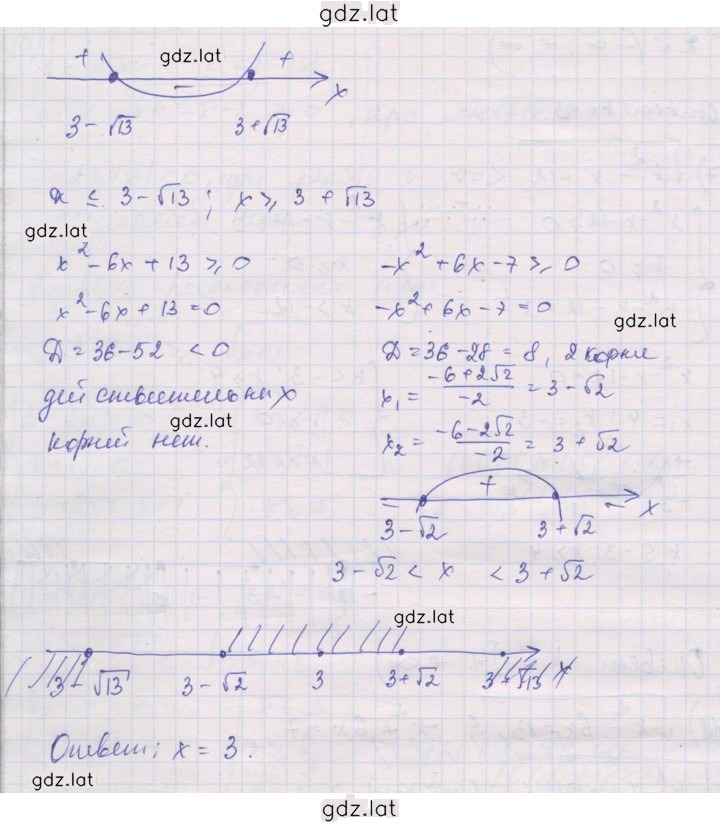 gdz.lat
+ gdz.lat +
− x
3-√13 3+√13
x ≤ 3-√13 ; x ≥ 3+√13
gdz.lat
x²-6x+13 ≥ 0
x²-6x+13=0
D=36-52 <0
действительных
gdz.lat
корней нет.
-x²+6x-7 ≥ 0
-x²+6x-7=0
gdz.lat
D=36-28=8, 2 корня
x₁ = (-6+2√2)/(-2) = 3-√2
x₂ = (-6-2√2)/(-2) = 3+√2
− + − x
3-√2 3+√2
3-√2 < x < 3+√2
gdz.lat
x
3-√13 3-√2 3 3+√2 3+√13
Ответ: x = 3.
gdz.lat
gdz.lat